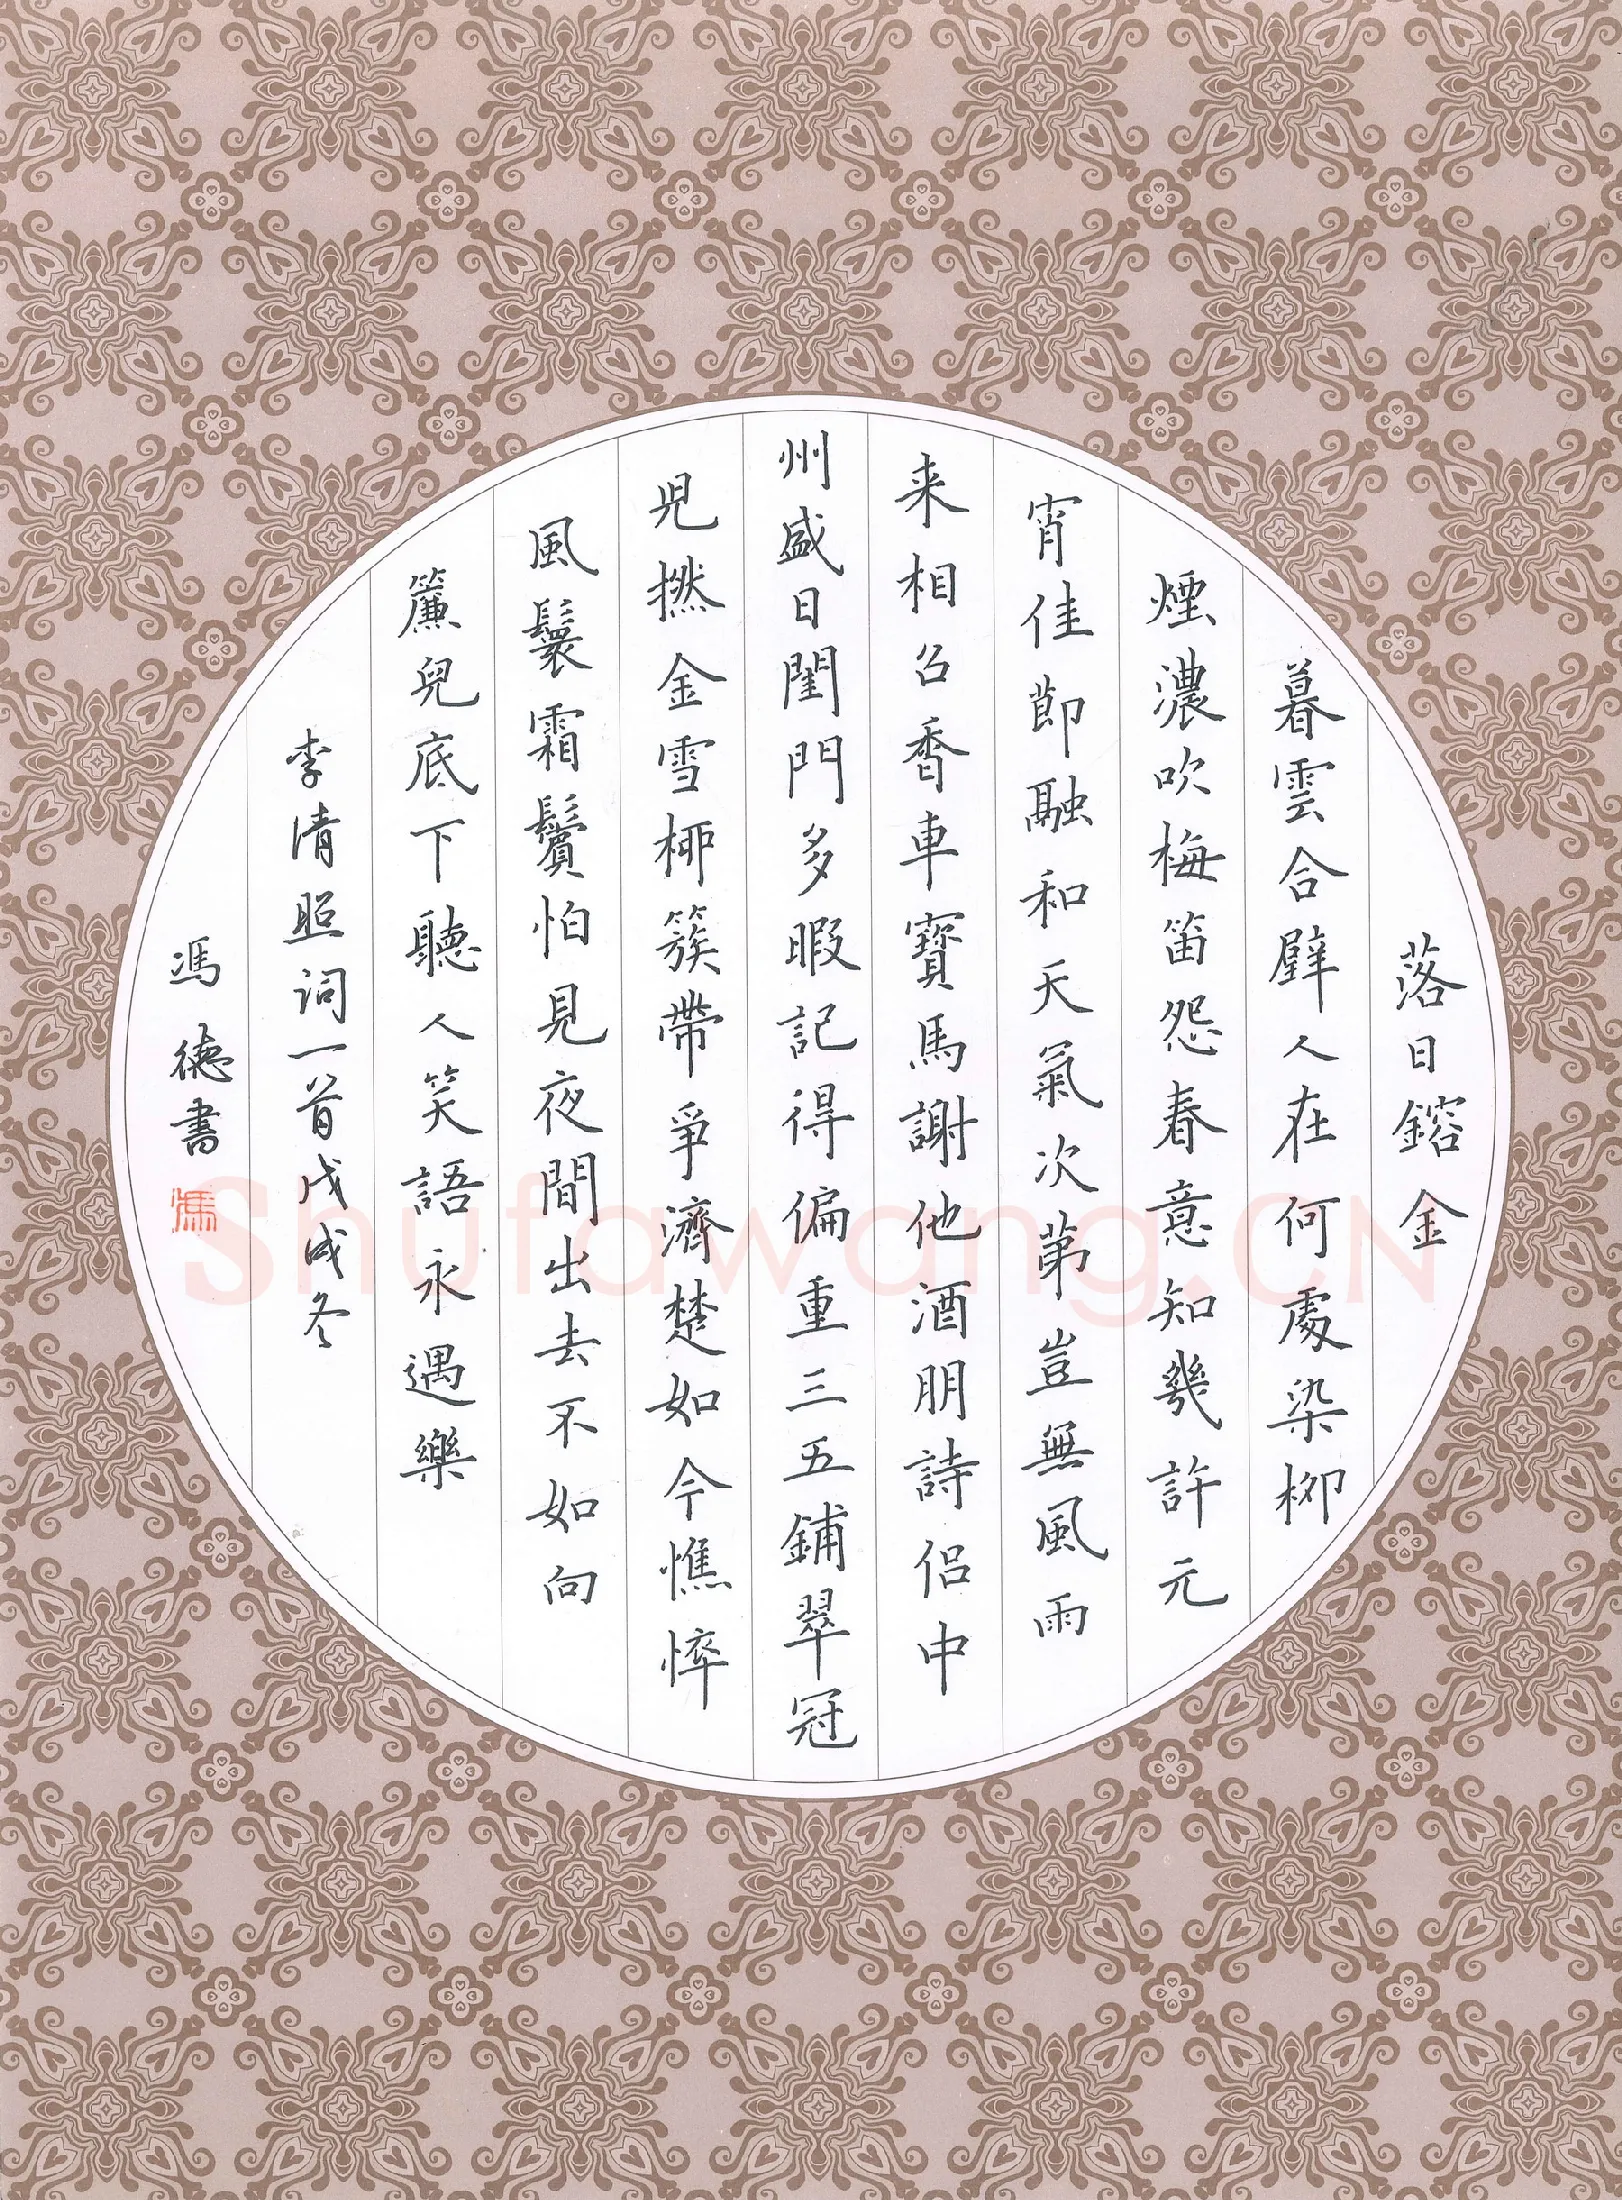 落日鎔金
暮雲合璧人在何處染柳
煙濃吹梅笛怨春意知幾許元
宵佳節融和天氣次第豈無風雨
来相召香車寶馬謝他酒朋詩侶中
州盛日閨門多暇記得偏重三五鋪翠冠
児撚金雪柳簇帶爭濟楚如今憔悴
風鬟霜鬢怕見夜間出去不如向
簾兒底下聽人笑語永遇樂
李清照词一首戊戌冬
馮德書
馮
Shufawang.CN